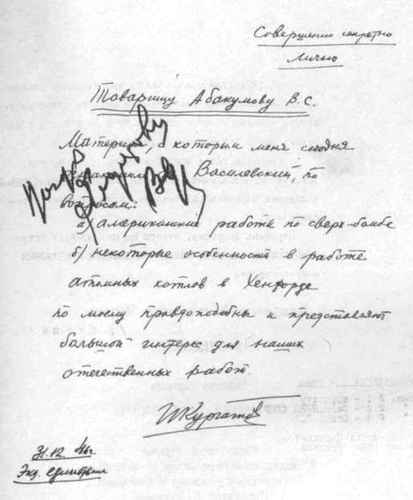 Совершенно секретно
Лично
Товарищу Абакумову В.С.
Материал, с которым меня сегодня
Василевский, по
вопросам:
а) американские работы по сверх-бомбе
б) некоторые особенности в работе
атомных котлов в Хенфорде
по моему правдоподобны и представляют
большой интерес для наших
отечественных работ.
ИКурчатов
31.12 46г
Экз. единствен